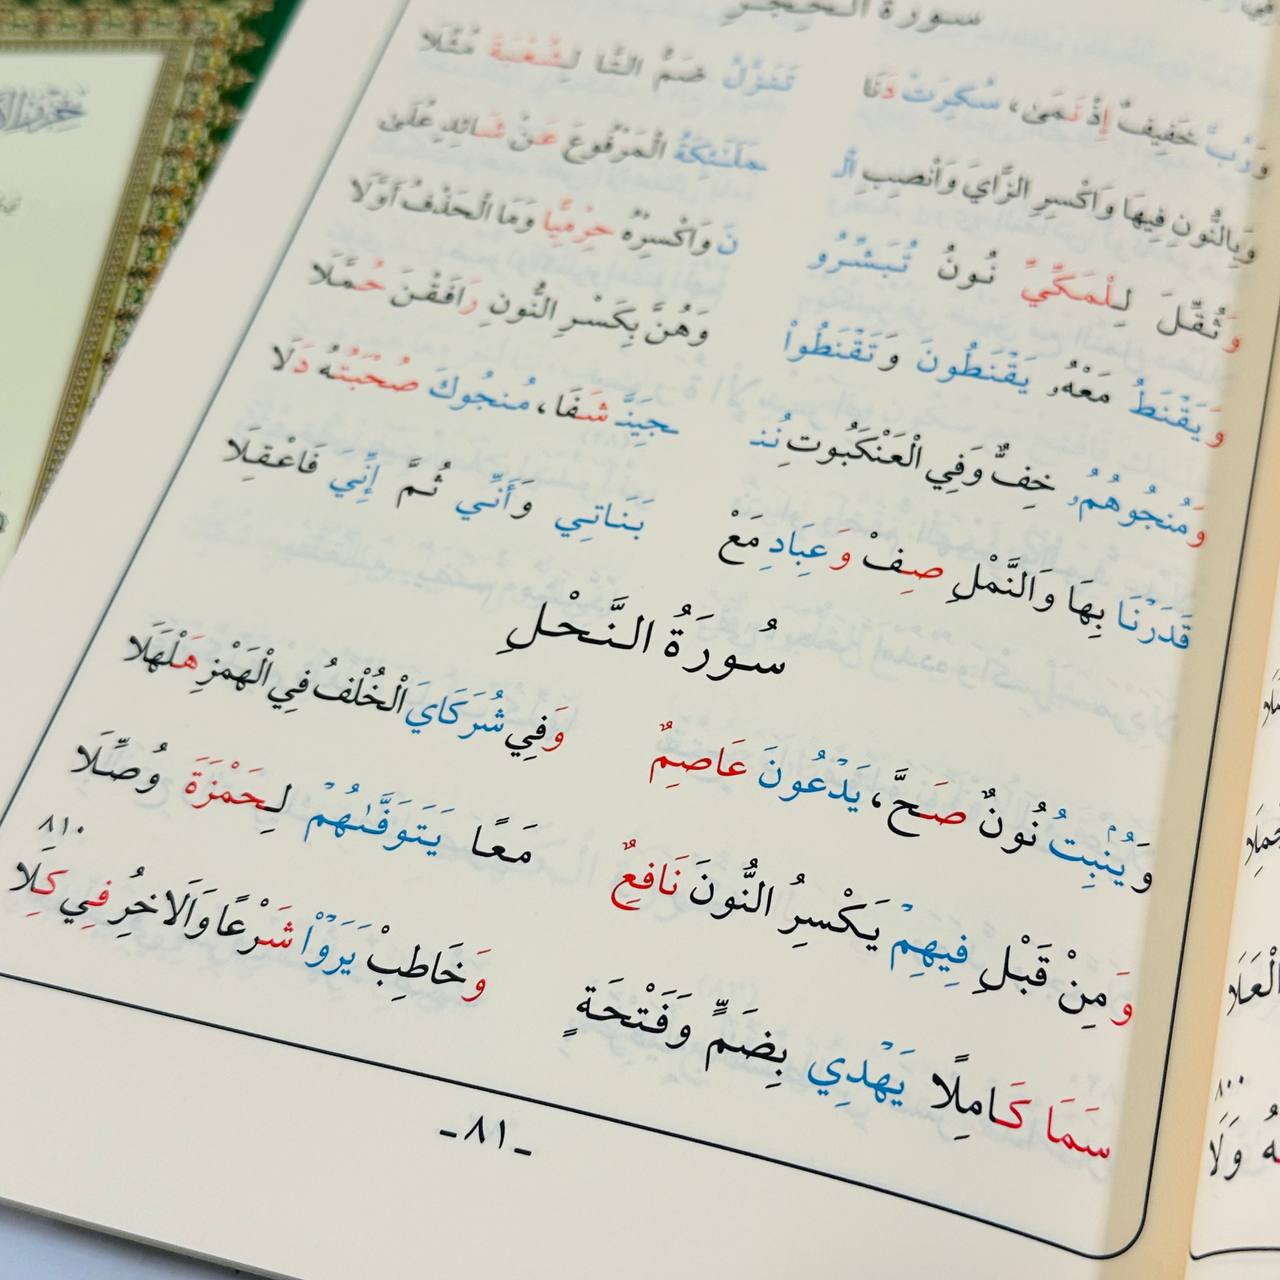 سورة الحجر
وَرُبَّ خَفِيفٌ إِذْ نَمَىٰ، سُكِرَتْ دَنَا تَنَزَّلُ ضَمُّ التَّا لِشُعْبَةَ مُثِّلَا
وَبِالنُّونِ فِيهَا وَاكْسِرِ الزَّايَ وَانْصِبِ الْـ ـمَلَـٰئِكَةُ الْمَرْفُوعَ عَنْ شَائِدٍ عُلَىٰ
وَثُقِّلَ لِلْمَكِّيِّ نُونُ تُبَشِّرُو نَ وَاكْسِرْهُ حِرْمِيًّا وَمَا الْحَذْفُ أَوَّلَا
وَيَقْنَطُ مَعْهُۥ يَقْنَطُونَ وَتَقْنَطُوا۟ وَهُنَّ بِكَسْرِ النُّونِ رَافَقْنَ حُمَّلَا
وَمُنجُوهُمُۥ خِفٌّ وَفِي الْعَنْكَبُوتِ نُنـ ـجِيَنَّ شَفَا، مُنجُوكَ صُحْبَتُهُ دَلَا
قَدَرْنَا بِهَا وَالنَّمْلِ صِفْ وَعِبَادِ مَعْ بَنَاتِي وَأَنِّي ثُمَّ إِنِّيَ فَاعْقِلَا
سُورَةُ النَّحْلِ
وَيُنۢبِتُ نُونٌ صَحَّ، يَدْعُونَ عَاصِمٌ وَفِي شُرَكَايَ الْخُلْفُ فِي الْهَمْزِ هَلْهَلَا
وَمِنْ قَبْلِ فِيهِمْ يَكْسِرُ النُّونَ نَافِعٌ مَعًا يَتَوَفَّىٰهُمْ لِحَمْزَةَ وُصِّلَا
٨١٠
سَمَا كَامِلًا يَهْدِي بِضَمٍّ وَفَتْحَةٍ وَخَاطِبْ يَرَوْا۟ شَرْعًا وَالَاخِرُ فِي كِلَا
-٨١-
٨٠٠